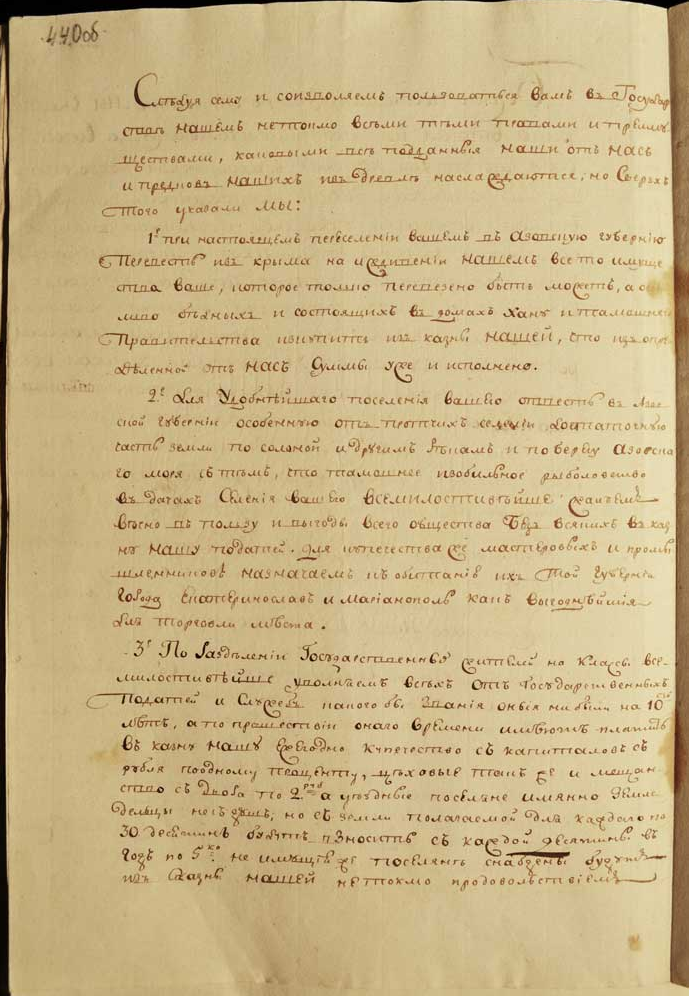 440об
Слѣдуя сему и соизволяемъ пользоваться вамъ въ Государ
ствѣ нашемъ нетокмо всѣми тѣми правами и преиму
ществами, каковыми всѣ подданныя наши отъ насъ
и предковъ нашихъ издревлѣ наслаждаются; но сверьхъ
того указали мы:
1е при настоящемъ переселеніи вашемъ въ Азовскую губернію
перевесть изъ крыма на иждивеніи нашемъ все то имуще
ства ваше, которое только перевезено быть можетъ, а
и состоящихъ въ домахъ хану и тамошнему
правительства искупить изъ казны нашей, что изъ опре
дѣленной отъ насъ суммы уже и исполнено.
2е Для удобнѣйшаго поселенія вашего отвесть въ Азов
ской губерніи особенную отъ протчихъ селеніи достаточную
часть земли по соленой и другимъ рѣкамъ и по берегу Азовска
го моря съ тѣмъ, что тамошнее изобильное рыболовство
въ дачахъ селенія вашего всемилостивѣйше жалуемъ
вѣчно въ пользу и выгоды всего общества безъ всякихъ въ каз
ну нашу податей. Для купечества же мастеровыхъ и промы
шленниковъ назначаемъ къ обитанію ихъ той губерніи
города Екатеринославъ и Маріанополь какъ выгоднѣйшія
для торговли мѣста.
3е По раздѣленіи Государственныхъ жителей на классы все-
милостивѣйше увольняемъ всѣхъ отъ Государственныхъ
податей и службъ какого бы званія оныя ни были на 10ть
лѣтъ, а по прошествіи онаго времени имѣютъ платить
въ казну нашу ежегодно купечество съ капиталовъ съ
рубля поодному проценту, цѣховые такъ же и мещан-
ство съ двора по 2 руб а уѣздные поселяне имянно земле
дельцы не съ душъ, но съ земли полагаемой для каждаго по
30 десятинъ будутъ взносить съ каждой десятины въ
годъ по 5 ко не имущіе же поселяне снабдены будутъ
изъ казны нашей нетокмо продовольствіемъ